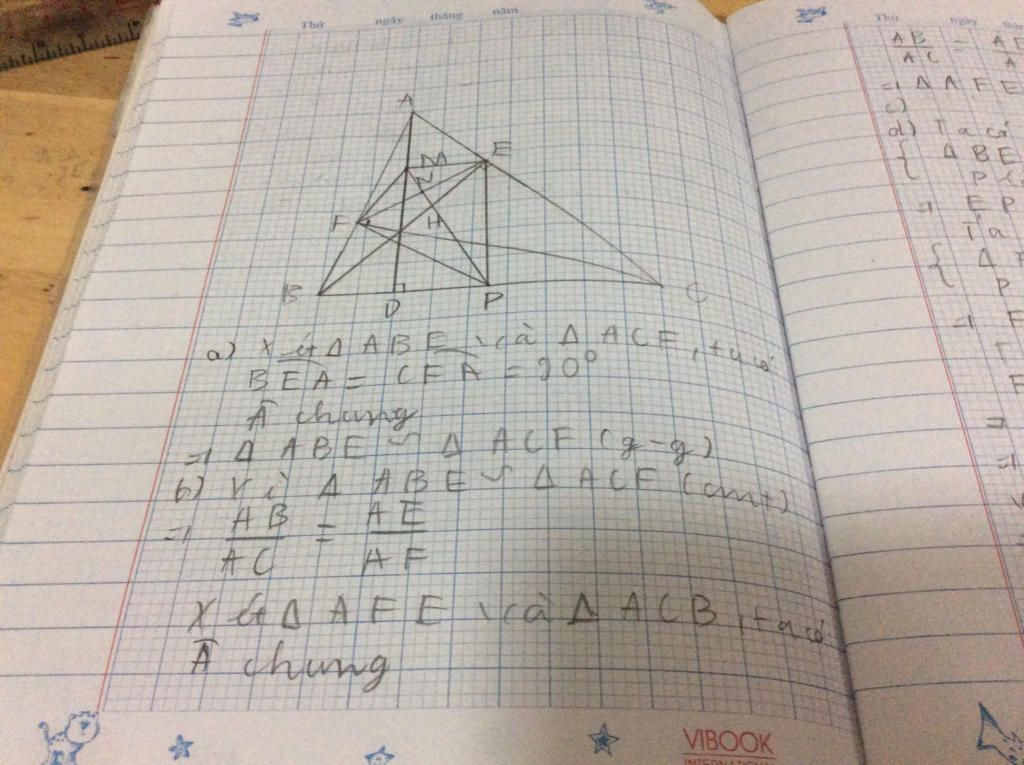 Thứ ngày tháng năm
A
M
E
N
F
H
B
D
P
C
a) Xét Δ ABE và Δ ACF, ta có
BEA = CFA = 90°
Â chung
=> Δ ABE ∽ Δ ACF (g-g)
b) Vì Δ ABE ∽ Δ ACF (cmt)
=> AB/AC = AE/AF
Xét Δ AFE và Δ ACB, ta có
Â chung
VIBOOK
INTERNATIONAL
Thứ ngày
AB/AC =
=> Δ AFE
c)
d) Ta có
{ Δ BE
P
=> EP
Ta
{ Δ
P
=> F
T
F
=>
=>